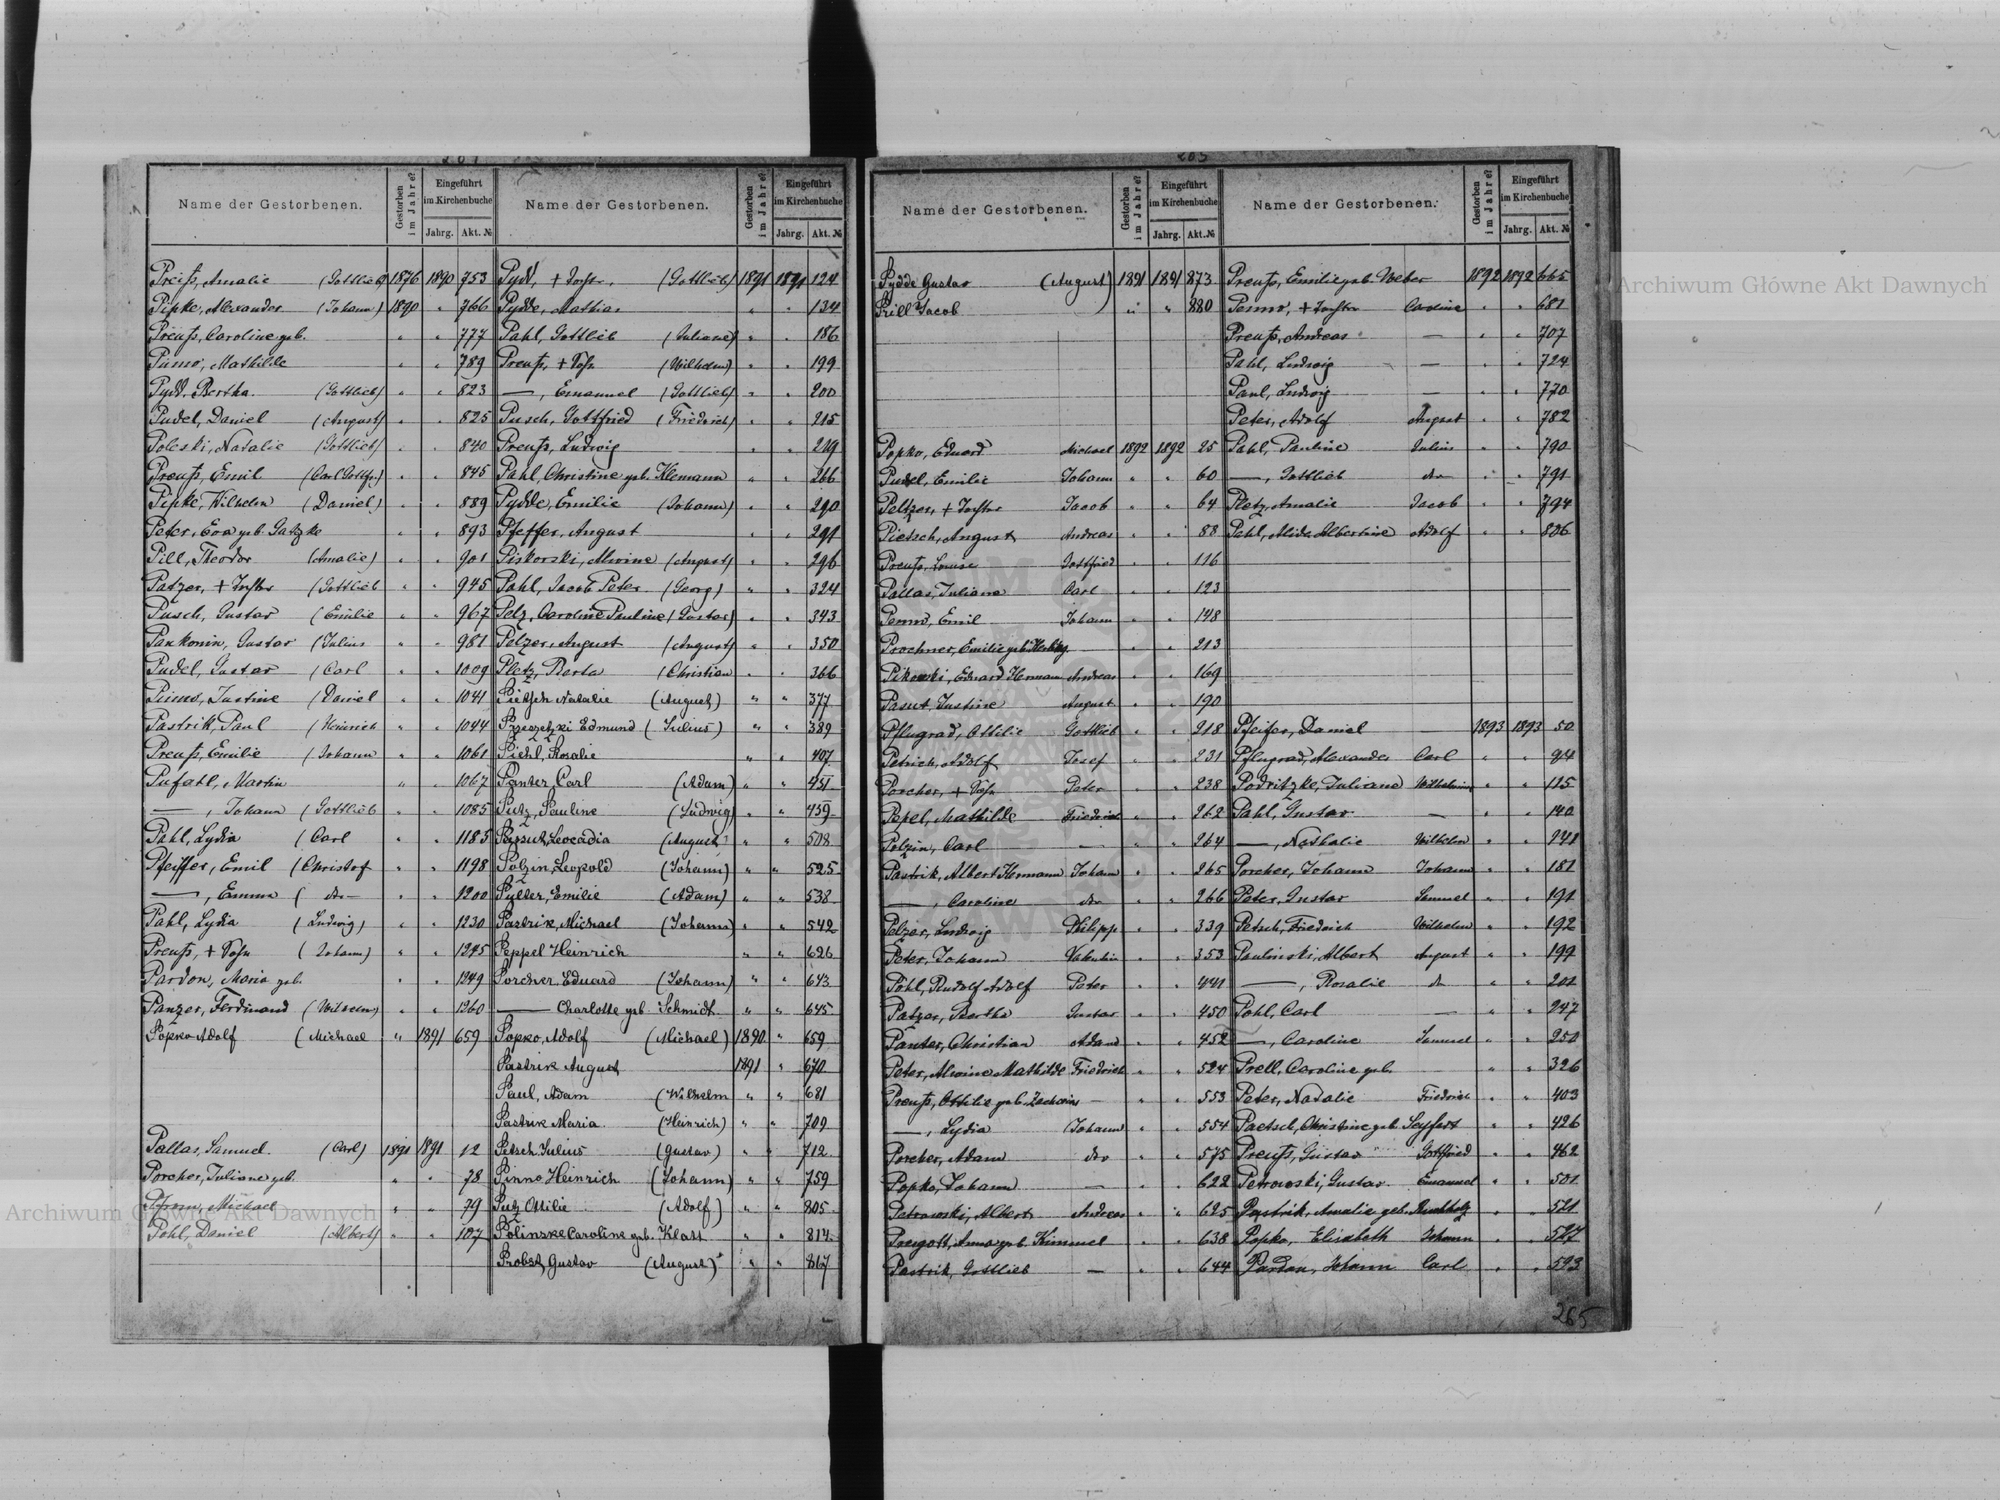 Archiwum Główne Akt Dawnych
Archiwum Główne Akt Dawnych
265
Name der Gestorbenen. Gestorben im Jahre? Eingeführt im Kirchenbuche Jahrg. Akt. №
Preuß, Amalie (Gottlieb) 1876 1890 753
Pipke, Alexander (Johann) 1890 " 766
Preuß, Caroline geb. " " 777
Mathilde " " 789
Pydd, Bertha (Gottlieb) " " 823
Pudel, Daniel (August) " " 825
Poleski, Natalie (Gottlieb) " " 840
Preuß, Emil (Carl Gottfr.) " " 845
Pipke, Wilhelm (Daniel) " " 889
Peter, Eva geb. Gatzke " " 893
Pill, Theodor (Amalie) " " 901
Patzer, + Tochter (Gottlieb " " 945
Pusch, Gustav (Emilie " " 967
Gustav (Julius " " 981
Pudel, Gustav (Carl " " 1009
Justine (Daniel " " 1041
Pastrik, Paul (Heinrich " " 1044
Preuß, Emilie (Johann " " 1061
Pufahl, Martin " " 1067
—, Johann (Gottlieb " " 1085
Pahl, Lydia (Carl " " 1185
Pfeiffer, Emil (Christof " " 1198
—, Emma ( do — " " 1200
Pahl, Lydia (Ludwig) " " 1230
Preuß, + Sohn (Johann) " " 1245
Pardon, Maria geb. " " 1249
Panzer, Ferdinand (Wilhelm) " " 1260
Popko Adolf (Michael " 1891 659
Pallas, Samuel (Carl) 1891 1891 12
Porcher, Juliane geb. " " 78
Michael " " 79
Pohl, Daniel (Albert) " " 107
Name der Gestorbenen. Gestorben im Jahre? Eingeführt im Kirchenbuche Jahrg. Akt. №
Pydd, + Tochter (Gottlieb) 1891 1891 124
Pydde, Mathias " " 134
Pahl, Gottlieb (Juliane) " " 186
Preuß, + Sohn (Wilhelm) " " 199
—, Emanuel (Gottlieb) " " 200
Pusch, Gottfried (Friedrich) " " 215
Preuß, Ludwig " " 219
Pahl, Christine geb. Klemann " " 266
Pydde, Emilie (Johann) " " 290
Pfeffer, August " " 291
Piskorski, Alwine (August) " " 296
Pahl, Jacob Peter (Georg) " " 324
Pelz, Caroline Pauline (Gustav) " " 343
Pelzer, August (August) " " 350
Pletz, Berta (Christian " " 366
Pietsch Natalie (August) " " 377
Edmund (Julius) " " 389
Piehl, Rosalie " " 407
Panter, Carl (Adam) " " 451
Putz, Pauline (Ludwig) " " 459
Leocadia (August) " " 508
Polzin, Leopold (Johann) " " 525
Emilie (Adam) " " 538
Pastrik, Michael (Johann) " " 542
Peppel Heinrich " " 626
Porcher, Eduard (Johann) " " 643
— Charlotte geb. Schmidt " " 645
Popko, Adolf (Michael) 1890 " 659
Pastrik August 1891 " 670
Paul, Adam (Wilhelm " " 681
Pastrik Maria (Heinrich) " " 709
Petsch Julius (Gustav) " " 712
Pinno Heinrich (Johann) " " 759
Putz Ottilie (Adolf) " " 805
Polinske Caroline geb. Klatt " " 814
Probst, Gustav (August) " " 817
Name der Gestorbenen. Gestorben im Jahre? Eingeführt im Kirchenbuche Jahrg. Akt. №
Pydde Gustav (August) 1891 1891 873
Prill Jacob " " 880
Popko, Eduard Michael 1892 1892 25
Pudel, Emilie Johann " " 60
Peltzer, + Tochter Jacob " " 64
Pietsch, August Andreas " " 88
Preuß, Louise Gottfried " " 116
Pallas, Juliane Carl " " 123
Emil Johann " " 148
Prochner, Emilie geb. " " 213
Eduard Hermann Andreas " " 169
Justine August " " 190
Pflugrad, Ottilie Gottlieb " " 218
Petrich, Adolf Josef " " 231
Porcher, + Sohn Peter " " 238
Pepel, Mathilde Friedrich " " 262
Polzin, Carl — " " 264
Pastrik, Albert Hermann Johann " " 265
—, Caroline do " " 266
Pelzer, Ludwig Philipp " " 339
Peter, Johann Valentin " " 353
Pohl, Rudolf Adolf Peter " " 441
Patzer, Bertha Gustav " " 450
Panter, Christian Adam " " 452
Peter, Alwine Mathilde Friedrich " " 524
Preuß, Ottilie geb. Zacharias — " " 553
—, Lydia Johann " " 554
Porcher, Adam do " " 575
Popko, Johann — " " 622
Petrowski, Albert Andreas " " 625
Anna geb. Kimmel " " 638
Pastrik, Gottlieb — " " 644
Name der Gestorbenen. Gestorben im Jahre? Eingeführt im Kirchenbuche Jahrg. Akt. №
Preuß, Emilie geb. Weber 1892 1892 665
+ Tochter Caroline " " 681
Preuß, Andreas — " " 707
Pahl, Ludwig — " " 724
Paul, Ludwig — " " 770
Peter, Adolf August " " 782
Pahl, Pauline Julius " " 790
—, Gottlieb do " " 791
Pletz, Amalie Jacob " " 794
Pahl, Albertine Adolf " " 826
Pfeifer, Daniel — 1893 1893 50
Pflugrad, Alexander Carl " " 94
Podritzke, Juliane Wilhelmine " " 115
Pahl, Gustav — " " 140
—, Nathalie Wilhelm " " 141
Porcher, Johann Johann " " 181
Peter, Gustav Samuel " " 191
Petsch, Friedrich Wilhelm " " 192
Paulinski, Albert August " " 199
—, Rosalie do " " 201
Pohl, Carl — " " 247
—, Caroline Samuel " " 250
Prell, Caroline geb. " " 326
Peter, Natalie Friedrich " " 403
Paetsch, Christine geb. Seyfert " " 426
Preuß, Gustav Gottfried " " 462
Petrowski, Gustav Emanuel " " 501
Pastrik, Amalie geb. Buchholz " " 521
Popko, Elisabeth Johann " " 527
Pardon, Johann Carl " " 593
265
Archiwum Główne Akt Dawnych